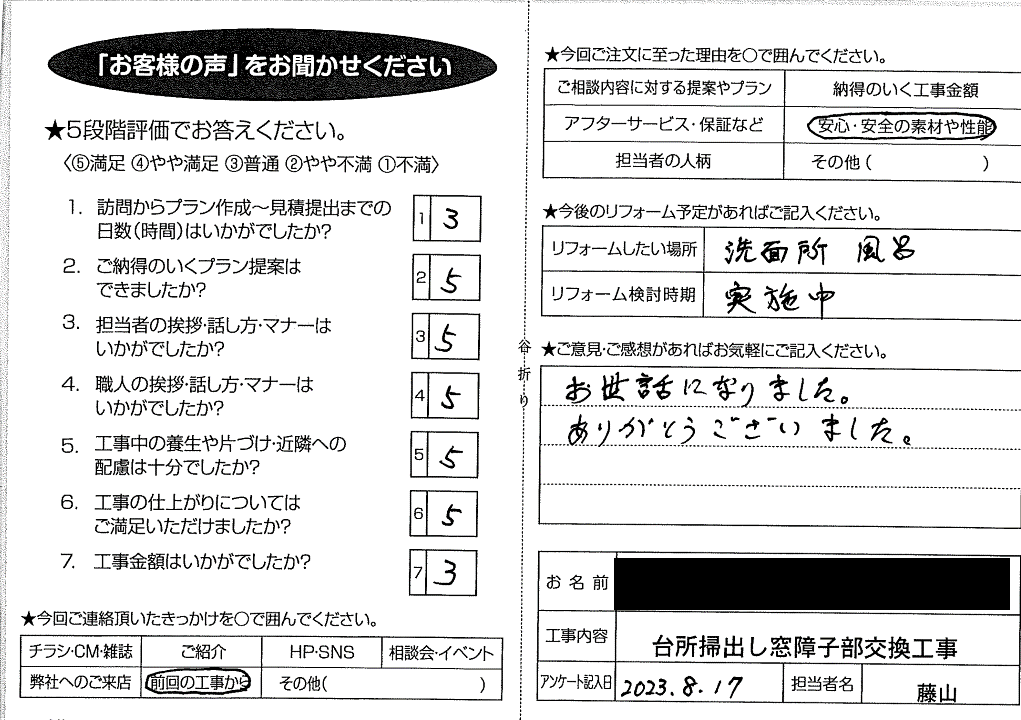 「お客様の声」をお聞かせください
★5段階評価でお答えください。
〈⑤満足 ④やや満足 ③普通 ②やや不満 ①不満〉
1. 訪問からプラン作成～見積提出までの
日数(時間)はいかがでしたか?
1 3
2. ご納得のいくプラン提案は
できましたか?
2 5
3. 担当者の挨拶・話し方・マナーは
いかがでしたか?
3 5
4. 職人の挨拶・話し方・マナーは
いかがでしたか?
4 5
5. 工事中の養生や片づけ・近隣への
配慮は十分でしたか?
5 5
6. 工事の仕上がりについては
ご満足いただけましたか?
6 5
7. 工事金額はいかがでしたか?
7 3
★今回ご連絡頂いたきっかけを○で囲んでください。
チラシ・CM・雑誌 ご紹介 HP・SNS 相談会・イベント
弊社へのご来店 前回の工事から その他( )
谷折り
★今回ご注文に至った理由を○で囲んでください。
ご相談内容に対する提案やプラン 納得のいく工事金額
アフターサービス・保証など 安心・安全の素材や性能
担当者の人柄 その他( )
★今後のリフォーム予定があればご記入ください。
リフォームしたい場所 洗面所 風呂
リフォーム検討時期 実施中
★ご意見・ご感想があればお気軽にご記入ください。
お世話になりました。
ありがとうございました。
お名前
工事内容 台所掃出し窓障子部交換工事
アンケート記入日 2023.8.17 担当者名 藤山